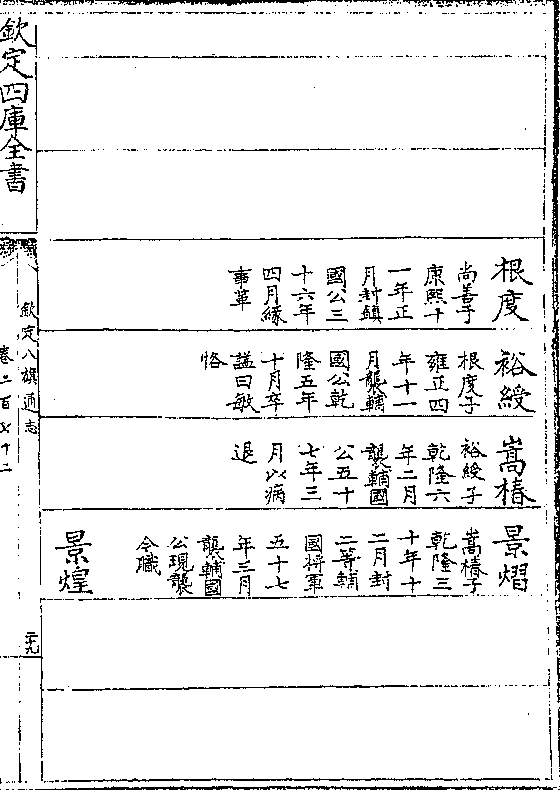 根度
尚善子
康熙十
一年正
月封鎮
國公三
十六年
四月緣
事革
裕綬
根度子
雍正四
年十一
月襲輔
國公乾
隆五年
十月卒
諡曰敏
恪
嵩椿
裕綬子
乾隆六
年二月
襲輔國
公五十
七年三
月以病
退
景熠
嵩椿子
乾隆三
十年十
二月封
二等輔
國將軍
五十七
年三月
襲輔國
公現襲
今職
景煌
欽定四庫全書
欽定八旗通志
卷二百七十二
二十九